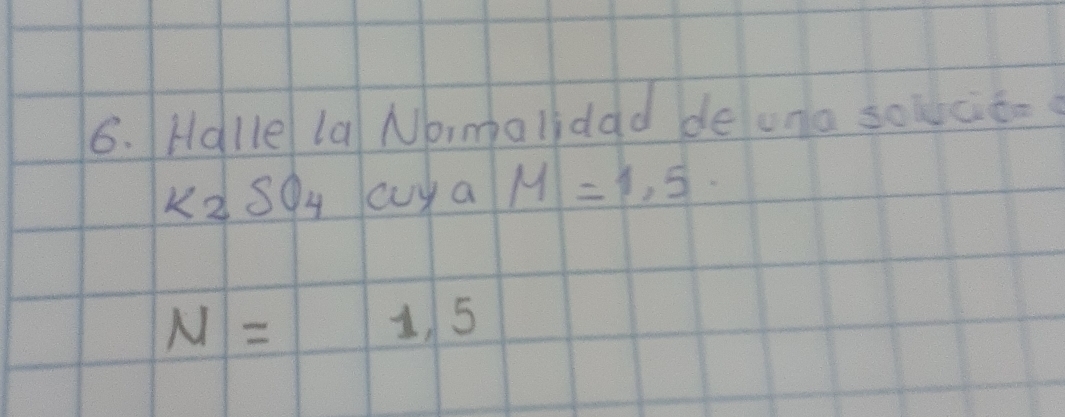 6. Halle la Normalidad de una
K2 SO4 cuya M = 1,5.
N = 1,5